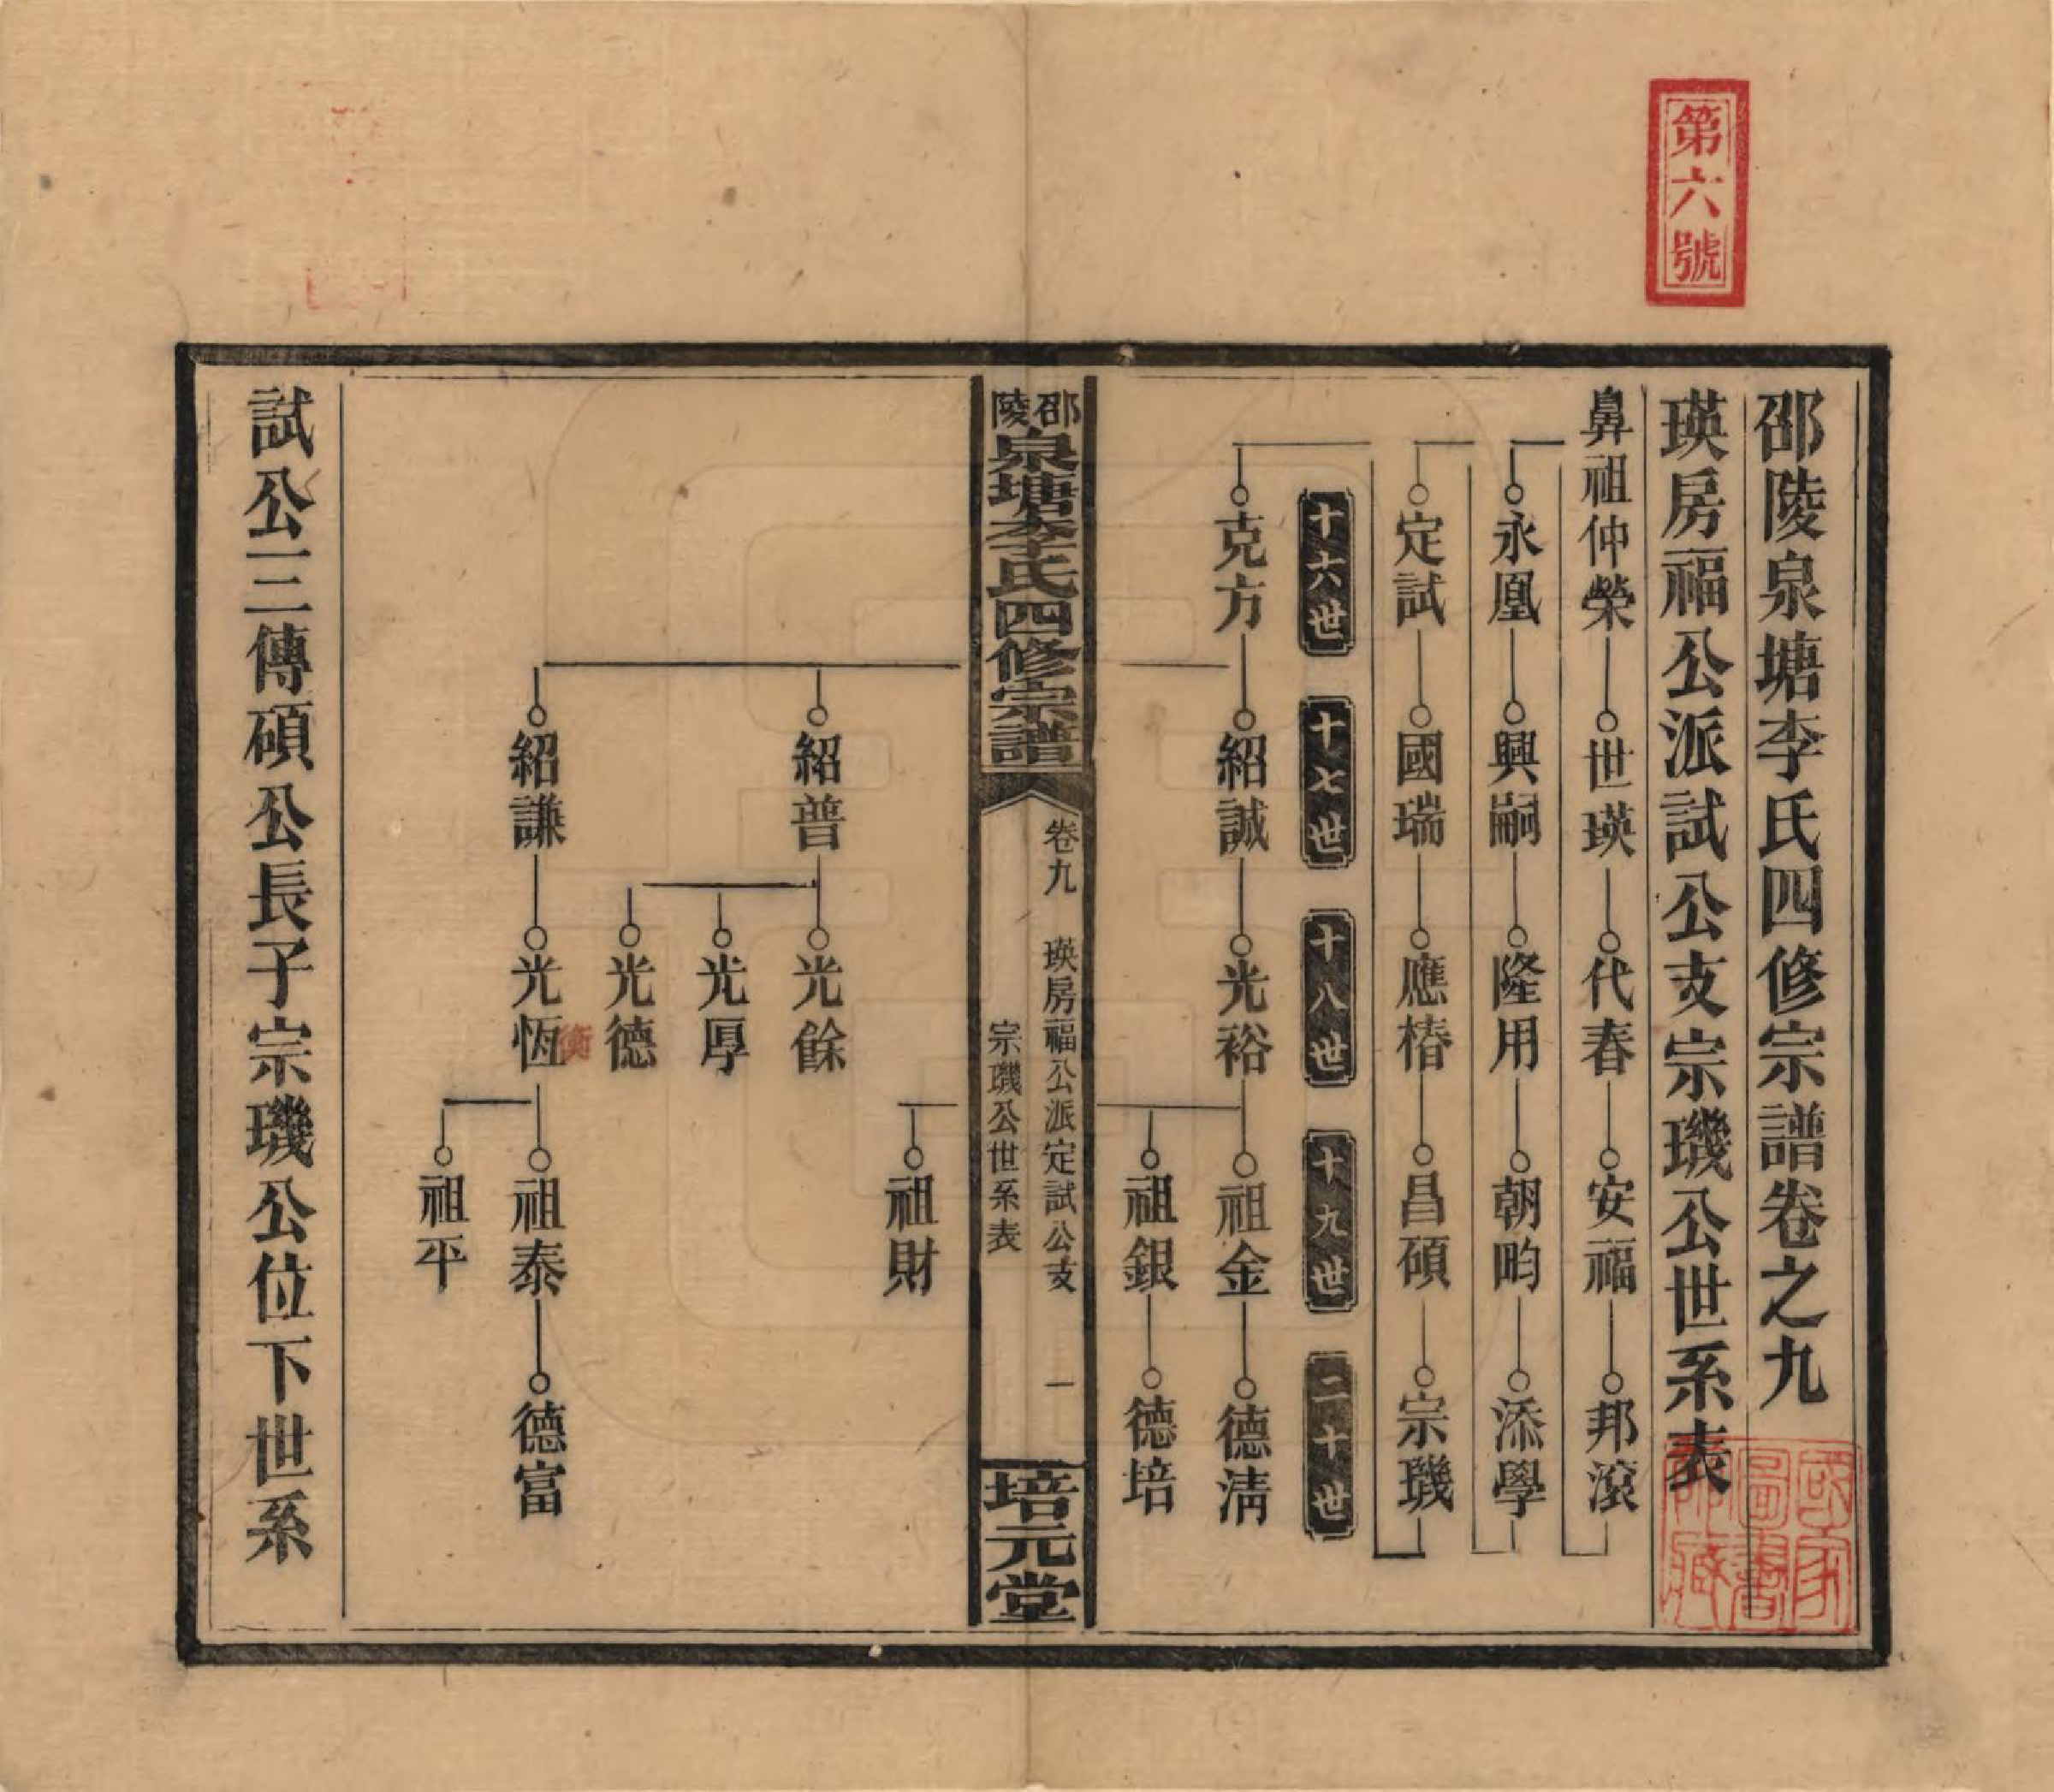 第六號
邵陵泉塘李氏四修宗譜卷之九
瑛房福公派試公支宗璣公世系表
鼻祖仲榮 世瑛 代春 安福 邦滾
永凰 興嗣 隆用 朝畇 添學
定試 國瑞 應椿 昌碩 宗璣
十六世 十七世 十八世 十九世 二十世
克方 紹誠 光裕 祖金 德淸
祖銀 德培
邵陵泉塘李氏四修宗譜
卷九 瑛房福公派定試公支 一
宗璣公世系表
培元堂
祖財
紹普 光餘
光厚
光德
紹謙 光恆 祖泰 德富
衡
祖平
試公三傳碩公長子宗璣公位下世系
國家圖書館藏